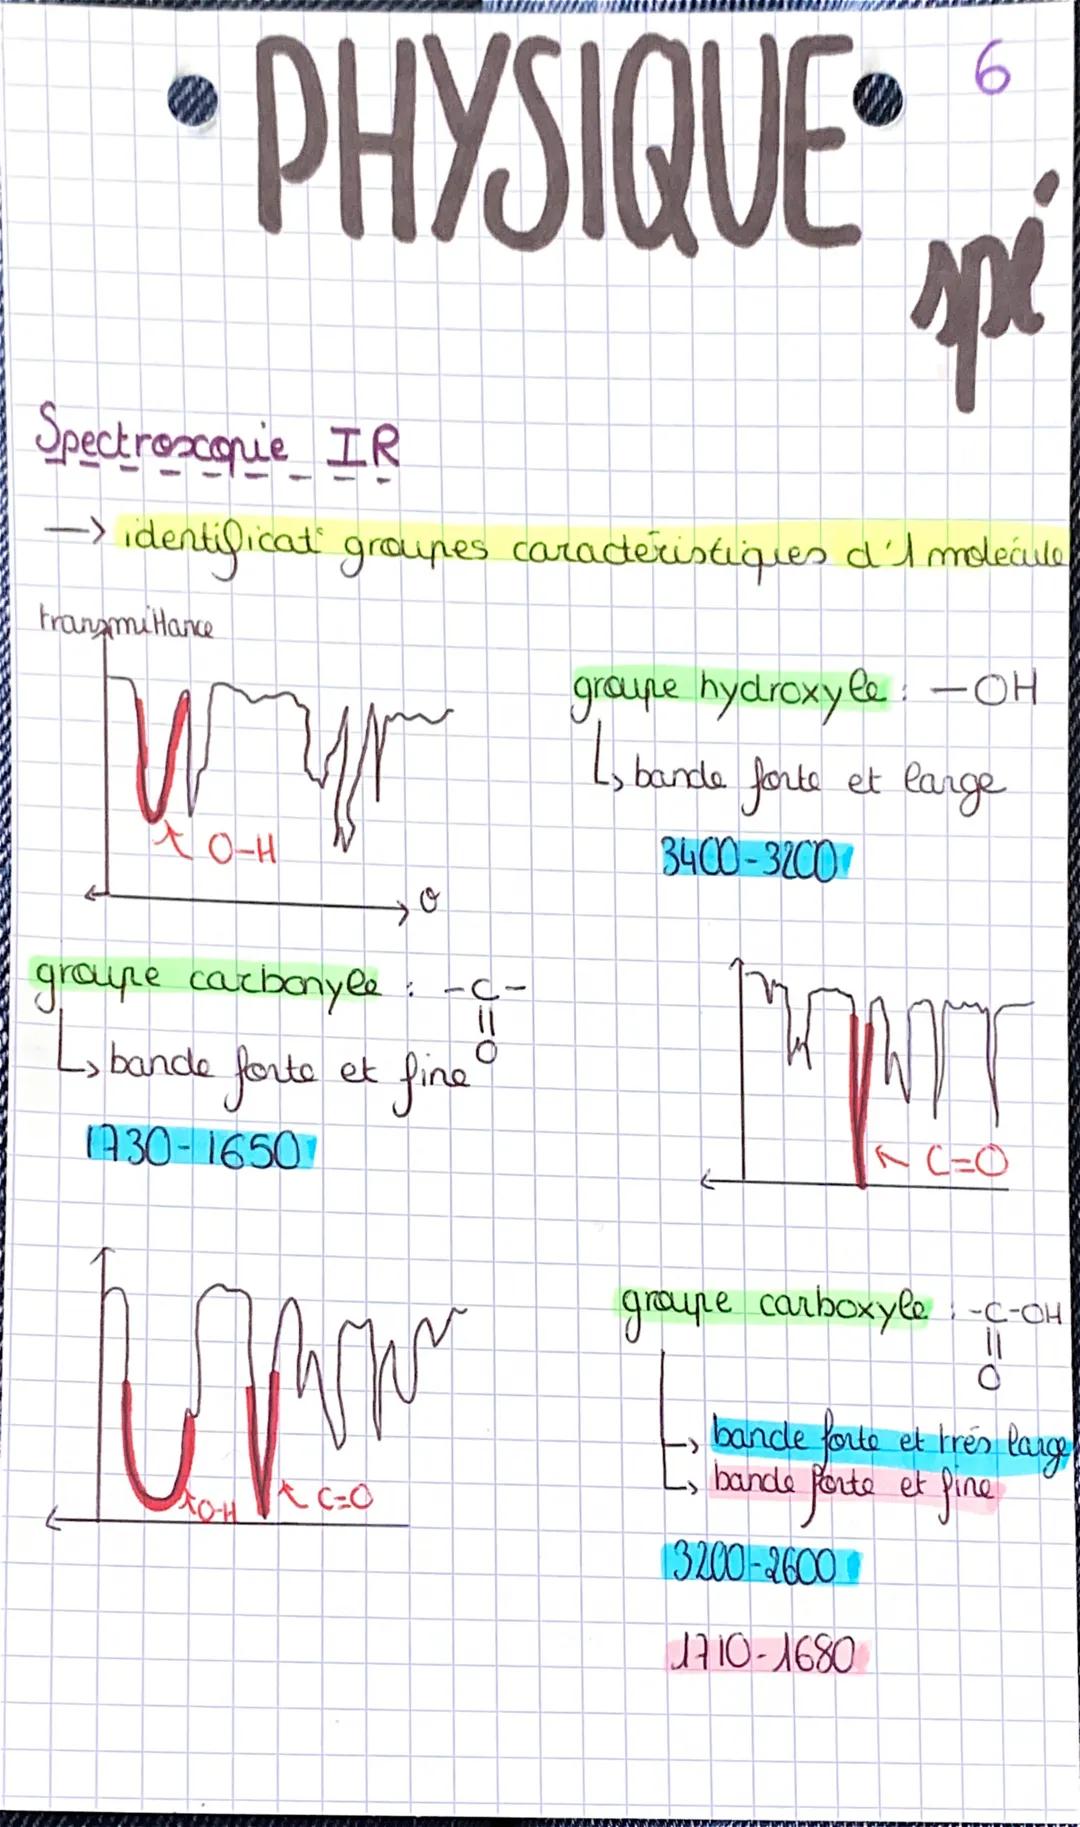 PHYSIQUE
6
spé
Spectroscopie IR
→ identificat° groupes caractéristiques d'1 molécule
transmittance
groupe hydroxyle : —OH
↳ bande forte et large
3400-3200
O-H
σ
groupe carbonyle : -C-
||
O
↳ bande forte et fine
1730-1650
C=O
groupe carboxyle : -C-OH
||
O
↳ bande forte et très large
↳ bande forte et fine
O-H
C=O
3200-2600
1710-1680